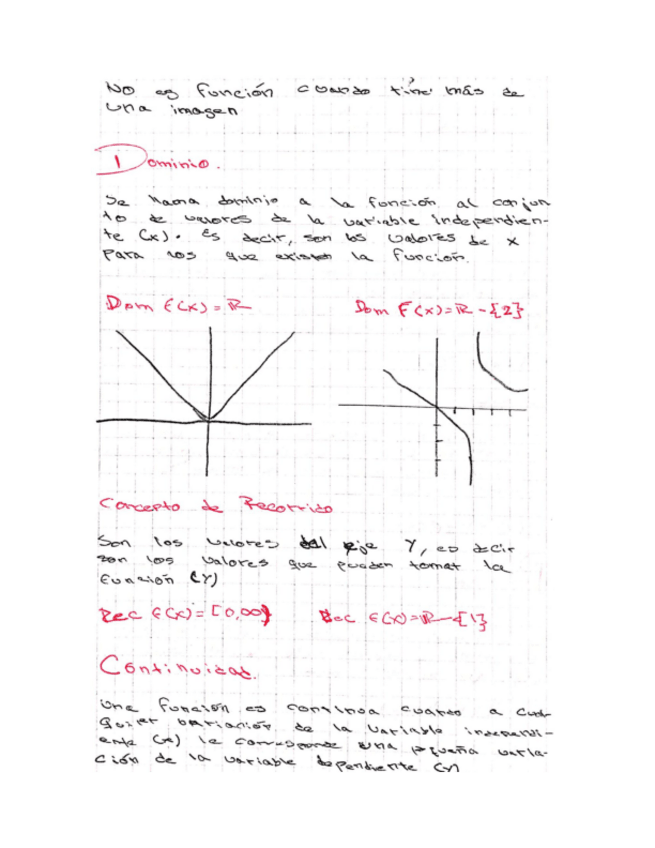 No es función cuando tine más de
una imagen
Dominio.
Se llama dominio a la función al conjun
to de valores de la variable independien-
te (x). Es decir, son los valores de x
para los que existen la función.
Dom f(x) = ℝ
Dom F(x) = ℝ - {2}
Concepto de Recorrido
Son los valores del eje Y, es decir
son los valores que pueden tomar la
Función (Y)
Rec f(x) = [0,∞)
Rec f(x) = ℝ - {1}
Continuidad.
Una función es continua cuando a cual-
quier variación de la variable independi-
ente (x) le corresponde una pequeña varia-
ción de la variable dependiente (Y)